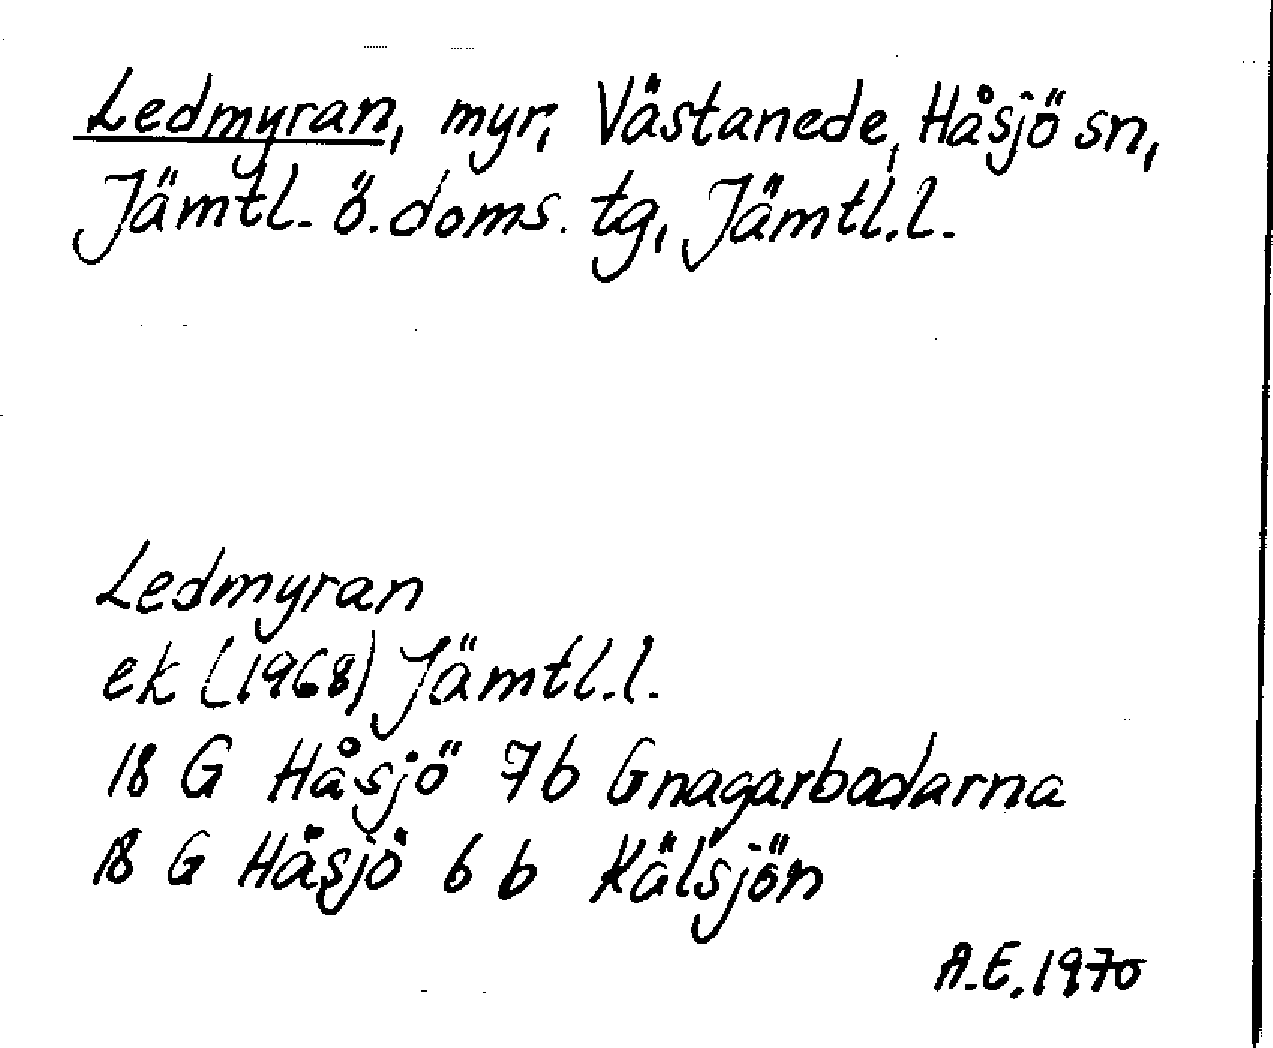 Ledmyran, myr, Västanede, Håsjö sn,
Jämtl. ö. doms. tg, Jämtl.l.
Ledmyran
ek (1968) Jämtl.l.
18 G Håsjö 7b Gnagarbodarna
18 G Håsjö 6b Kälsjön
A.E. 1970